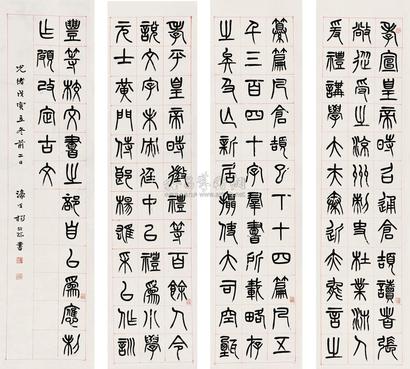 孝宣皇帝時召通倉頡讀者張
敞從受之涼州刺史杜業沛人
爰禮講學大夫秦近亦能言之
孝平皇帝時徵禮等百餘人令
說文字未央廷中以禮為小學
元士黃門侍郎楊雄采以作訓
纂篇凡倉頡以下十四篇凡五
千三百四十字群書所載略存
之矣及亡新居攝使大司空甄
豐等校文書之部自以為應制
作頗改定古文
光緒戊寅立冬前二日 濠叟楊沂孫書